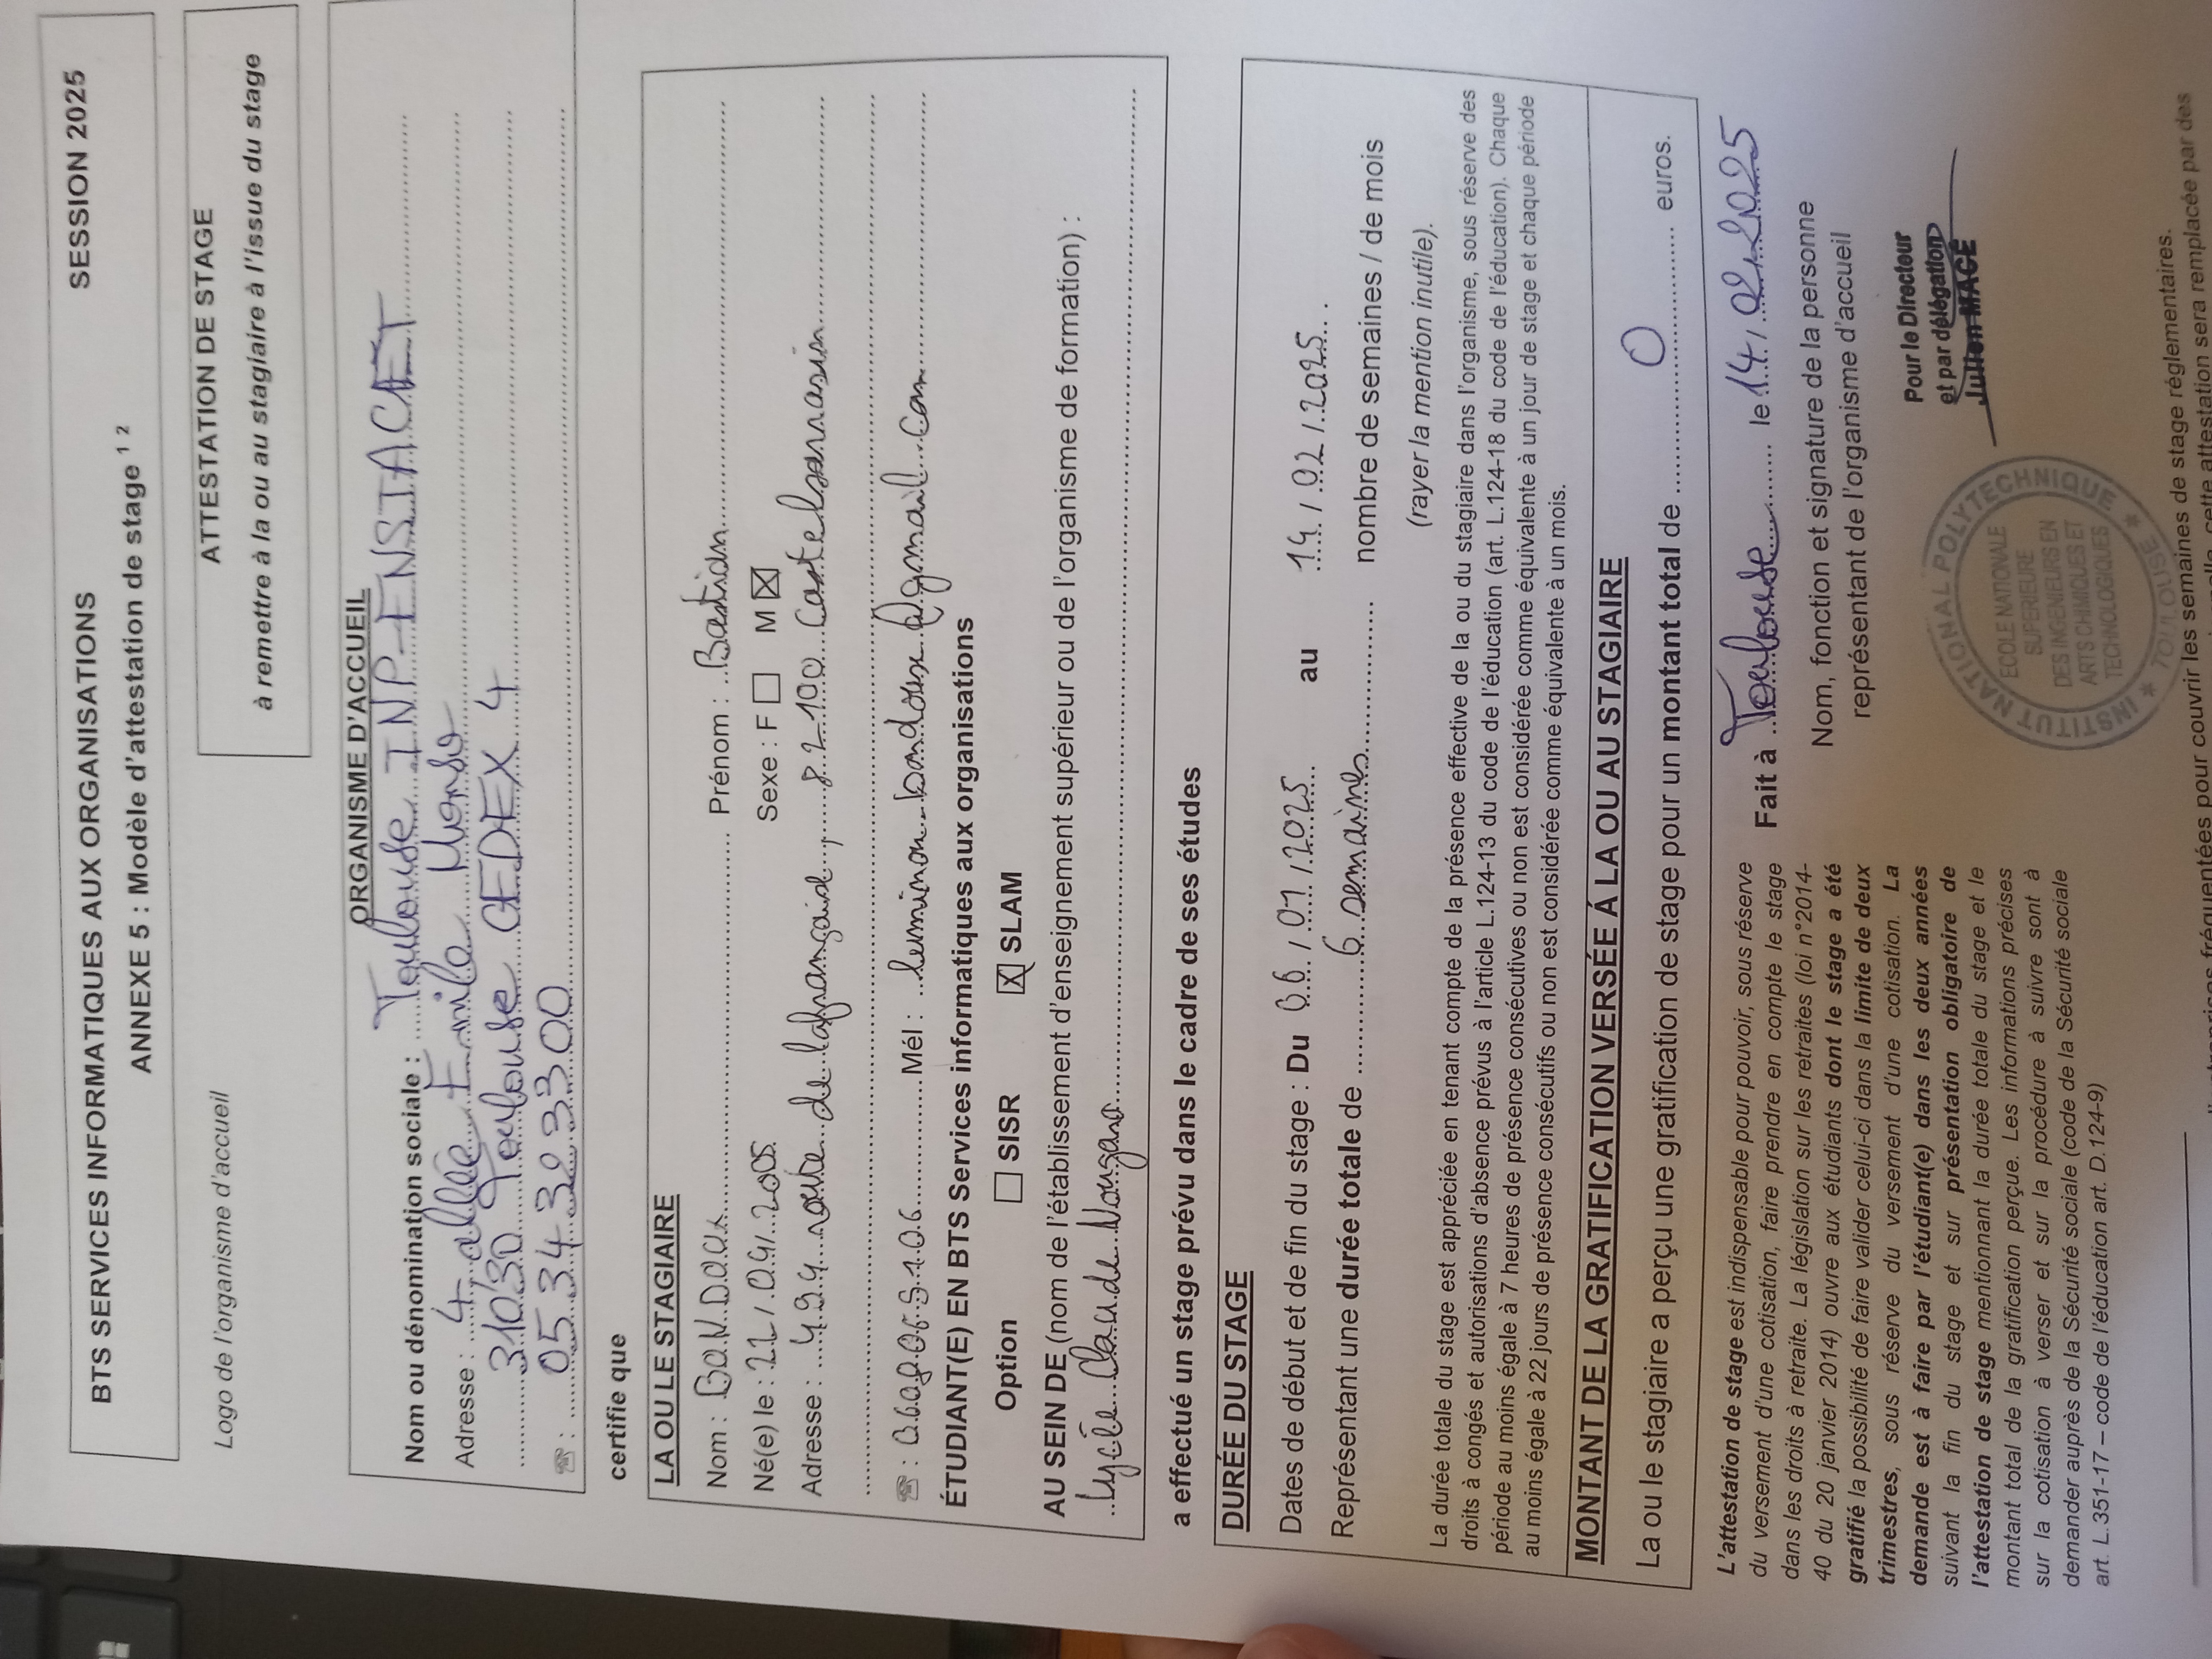 BTS SERVICES INFORMATIQUES AUX ORGANISATIONS SESSION 2025
ANNEXE 5 : Modèle d'attestation de stage 1 2
Logo de l'organisme d'accueil
ATTESTATION DE STAGE
à remettre à la ou au stagiaire à l'issue du stage
ORGANISME D'ACCUEIL
Nom ou dénomination sociale : Toulouse INP-ENSIACET
Adresse : 4, allée Emile Monso
31030 Toulouse CEDEX 4
☎ : 05 34 32 33 00
certifie que
LA OU LE STAGIAIRE
Nom : BONDOUX Prénom : Bastian
Né(e) le : 22/09/2005 Sexe : F ☐ M ☒
Adresse : 494 route de lafrançaise, 82100 Castelsarrasin
☎ : 0608065106 Mél : luminou-bondoux@gmail.com
ÉTUDIANT(E) EN BTS Services informatiques aux organisations
Option ☐ SISR ☒ SLAM
AU SEIN DE (nom de l'établissement d'enseignement supérieur ou de l'organisme de formation) :
Lycée Claude Nougaro
a effectué un stage prévu dans le cadre de ses études
DURÉE DU STAGE
Dates de début et de fin du stage : Du 06/01/2025 au 14/02/2025.
Représentant une durée totale de 6 semaines nombre de semaines / de mois
(rayer la mention inutile).
La durée totale du stage est appréciée en tenant compte de la présence effective de la ou du stagiaire dans l'organisme, sous réserve des
droits à congés et autorisations d'absence prévus à l'article L.124-13 du code de l'éducation (art. L.124-18 du code de l'éducation). Chaque
période au moins égale à 7 heures de présence consécutives ou non est considérée comme équivalente à un jour de stage et chaque période
au moins égale à 22 jours de présence consécutifs ou non est considérée comme équivalente à un mois.
MONTANT DE LA GRATIFICATION VERSÉE Á LA OU AU STAGIAIRE
La ou le stagiaire a perçu une gratification de stage pour un montant total de 0 euros.
L'attestation de stage est indispensable pour pouvoir, sous réserve
du versement d'une cotisation, faire prendre en compte le stage
dans les droits à retraite. La législation sur les retraites (loi n°2014-
40 du 20 janvier 2014) ouvre aux étudiants dont le stage a été
gratifié la possibilité de faire valider celui-ci dans la limite de deux
trimestres, sous réserve du versement d'une cotisation. La
demande est à faire par l'étudiant(e) dans les deux années
suivant la fin du stage et sur présentation obligatoire de
l'attestation de stage mentionnant la durée totale du stage et le
montant total de la gratification perçue. Les informations précises
sur la cotisation à verser et sur la procédure à suivre sont à
demander auprès de la Sécurité sociale (code de la Sécurité sociale
art. L.351-17 – code de l'éducation art. D.124-9)
Fait à Toulouse le 14/02/2025
Nom, fonction et signature de la personne
représentant de l'organisme d'accueil
Pour le Directeur
et par délégation
Julien MACÉ
INSTITUT NATIONAL POLYTECHNIQUE
ECOLE NATIONALE
SUPERIEURE
DES INGENIEURS EN
ARTS CHIMIQUES ET
TECHNOLOGIQUES
* TOULOUSE *
fréquentées pour couvrir les semaines de stage réglementaires.
cette attestation sera remplacée par des